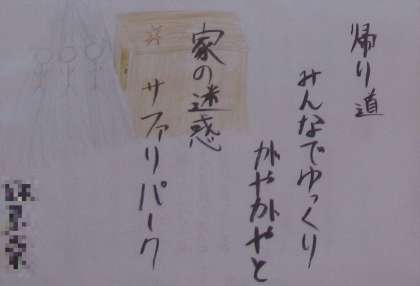 帰り道
みんなでゆっくり
がやがやと
家の迷惑
サファリパーク